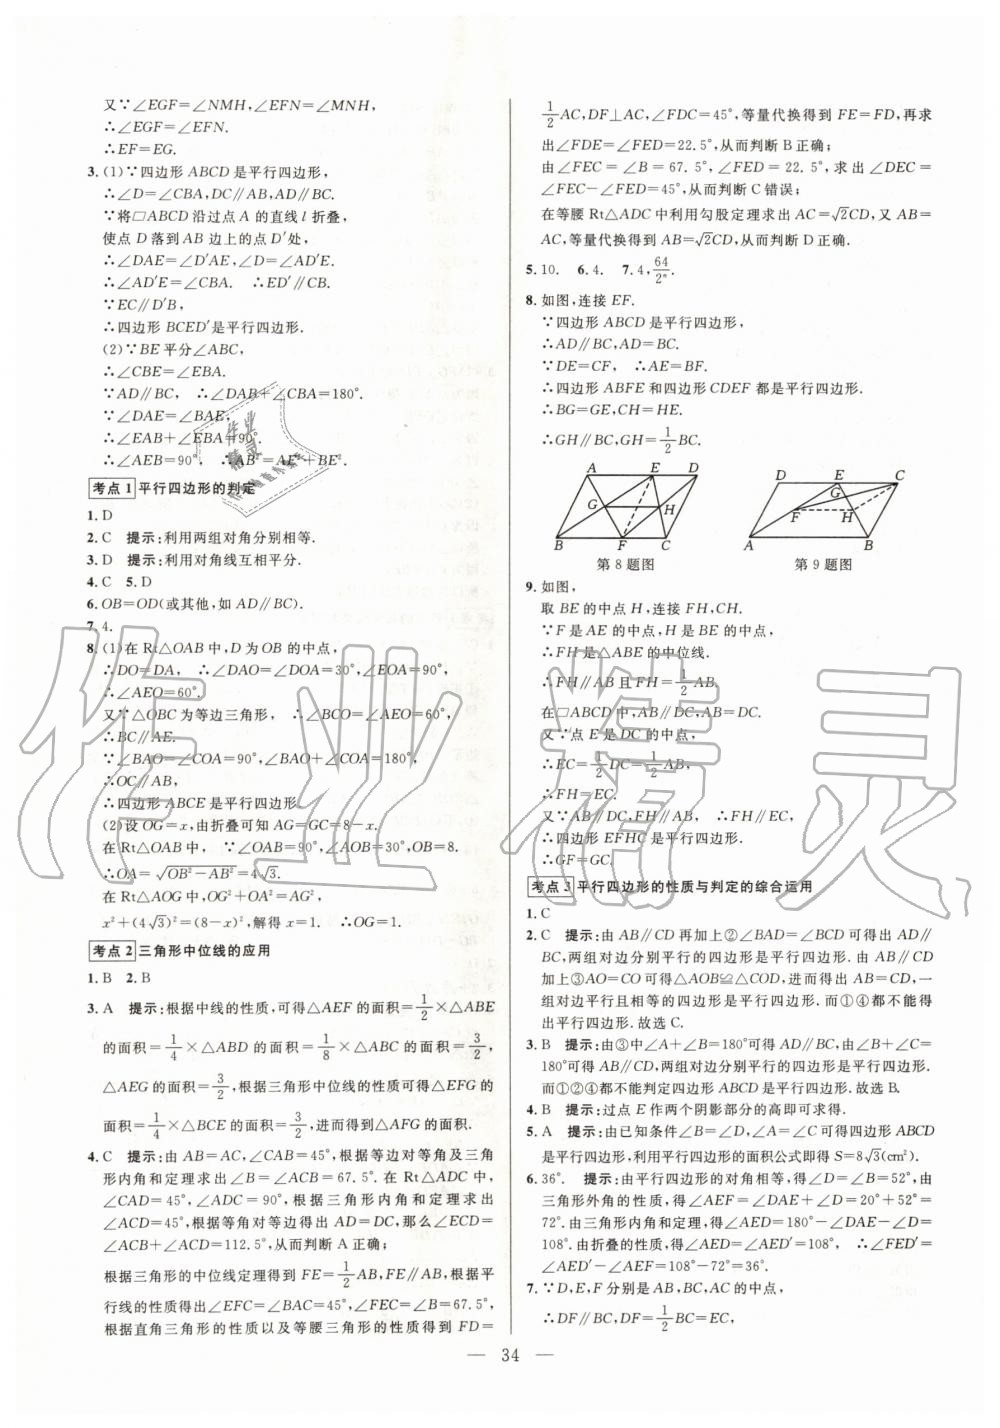 又∵∠EGF=∠NMH,∠EFN=∠MNH,
∴∠EGF=∠EFN.
∴EF=EG.
3.(1)∵四边形ABCD是平行四边形,
∴∠D=∠CBA,DC∥AB,AD∥BC.
∵将□ABCD沿过点A的直线l折叠,
使点D落到AB边上的点D′处,
∴∠DAE=∠D′AE,∠D=∠AD′E.
∴∠AD′E=∠CBA. ∴ED′∥CB.
∵EC∥D′B,
∴四边形BCED′是平行四边形.
(2)∵BE平分∠ABC,
∴∠CBE=∠EBA.
∵AD∥BC, ∴∠DAB+∠CBA=180°.
∵∠DAE=∠BAE,
∴∠EAB+∠EBA=90°.
∴∠AEB=90°, ∴AB²=AE²+BE².
考点1 平行四边形的判定
1. D
2. C 提示:利用两组对角分别相等.
3. D 提示:利用对角线互相平分.
4. C 5. D
6. OB=OD(或其他,如AD∥BC).
7. 4.
8.(1)在Rt△OAB中,D为OB的中点,
∴DO=DA, ∴∠DAO=∠DOA=30°,∠EOA=90°,
∴∠AEO=60°.
又∵△OBC为等边三角形, ∴∠BCO=∠AEO=60°,
∴BC∥AE.
∵∠BAO=∠COA=90°,∠BAO+∠COA=180°,
∴OC∥AB,
∴四边形ABCE是平行四边形.
(2)设OG=x,由折叠可知AG=GC=8-x.
在Rt△OAB中,∠OAB=90°,∠AOB=30°,OB=8.
∴OA=√(OB²-AB²)=4√3.
在Rt△AOG中,OG²+OA²=AG²,
x²+(4√3)²=(8-x)²,解得x=1. ∴OG=1.
考点2 三角形中位线的应用
1. B 2. B
3. A 提示:根据中线的性质,可得△AEF的面积=1/2×△ABE
的面积=1/4×△ABD的面积=1/8×△ABC的面积=3/2,
△AEG的面积=3/2,根据三角形中位线的性质可得△EFG的
面积=1/4×△BCE的面积=3/2,进而得到△AFG的面积.
4. C 提示:由AB=AC,∠CAB=45°,根据等边对等角及三角
形内角和定理求出∠B=∠ACB=67.5°.在Rt△ADC中,
∠CAD=45°,∠ADC=90°,根据三角形内角和定理求出
∠ACD=45°,根据等角对等边得出AD=DC,那么∠ECD=
∠ACB+∠ACD=112.5°,从而判断A正确;
根据三角形的中位线定理得到FE=1/2AB,FE∥AB,根据平
行线的性质得出∠EFC=∠BAC=45°,∠FEC=∠B=67.5°,
根据直角三角形的性质以及等腰三角形的性质得到FD=
1/2AC,DF⊥AC,∠FDC=45°,等量代换得到FE=FD,再求
出∠FDE=∠FED=22.5°,从而判断B正确;
由∠FEC=∠B=67.5°,∠FED=22.5°,求出∠DEC=
∠FEC-∠FED=45°,从而判断C错误;
在等腰Rt△ADC中利用勾股定理求出AC=√2CD,又AB=
AC,等量代换得到AB=√2CD,从而判断D正确.
5. 10. 6. 4. 7. 4,64/2ⁿ.
8.如图,连接EF.
∵四边形ABCD是平行四边形,
∴AD∥BC,AD=BC.
∵DE=CF, ∴AE=BF.
∴四边形ABFE和四边形CDEF都是平行四边形.
∴BG=GE,CH=HE.
∴GH∥BC,GH=1/2BC.
A E D
G H
B F C
第8题图
D E C
F H
A B
第9题图
9.如图,
取BE的中点H,连接FH,CH.
∵F是AE的中点,H是BE的中点,
∴FH是△ABE的中位线.
∴FH∥AB且FH=1/2AB.
在□ABCD中,AB∥DC,AB=DC.
又∵点E是DC的中点,
∴EC=1/2DC=1/2AB,
∴FH=EC.
又∵AB∥DC,FH∥AB, ∴FH∥EC,
∴四边形EFHC是平行四边形.
∴GF=GC.
考点3 平行四边形的性质与判定的综合运用
1. C
2. C 提示:由AB∥CD再加上②∠BAD=∠BCD可得出AD∥
BC,两组对边分别平行的四边形是平行四边形.由AB∥CD
加上③AO=CO可得△AOB≌△COD,进而得出AB=CD,一
组对边平行且相等的四边形是平行四边形.而①④都不能得
出平行四边形.故选C.
3. B 提示:由③中∠A+∠B=180°可得AD∥BC,由∠B+∠C=
180°可得AB∥CD,两组对边分别平行的四边形是平行四边形.
而①②④都不能判定四边形ABCD是平行四边形.故选B.
4. B 提示:过点E作两个阴影部分的高即可求得.
5. A 提示:由已知条件∠B=∠D,∠A=∠C可得四边形ABCD
是平行四边形,利用平行四边形的面积公式即得S=8√3(cm²).
6. 36°. 提示:由平行四边形的对角相等,得∠D=∠B=52°,由
三角形外角的性质,得∠AEF=∠DAE+∠D=20°+52°=
72°.由三角形内角和定理,得∠AED=180°-∠DAE-∠D=
108°.由折叠的性质,得∠AED=∠AED′=108°, ∴∠FED′=
∠AED′-∠AEF=108°-72°=36°.
7. ∵D,E,F分别是AB,BC,AC的中点,
∴DF∥BC,DF=1/2BC=EC,
— 34 —
作业精灵